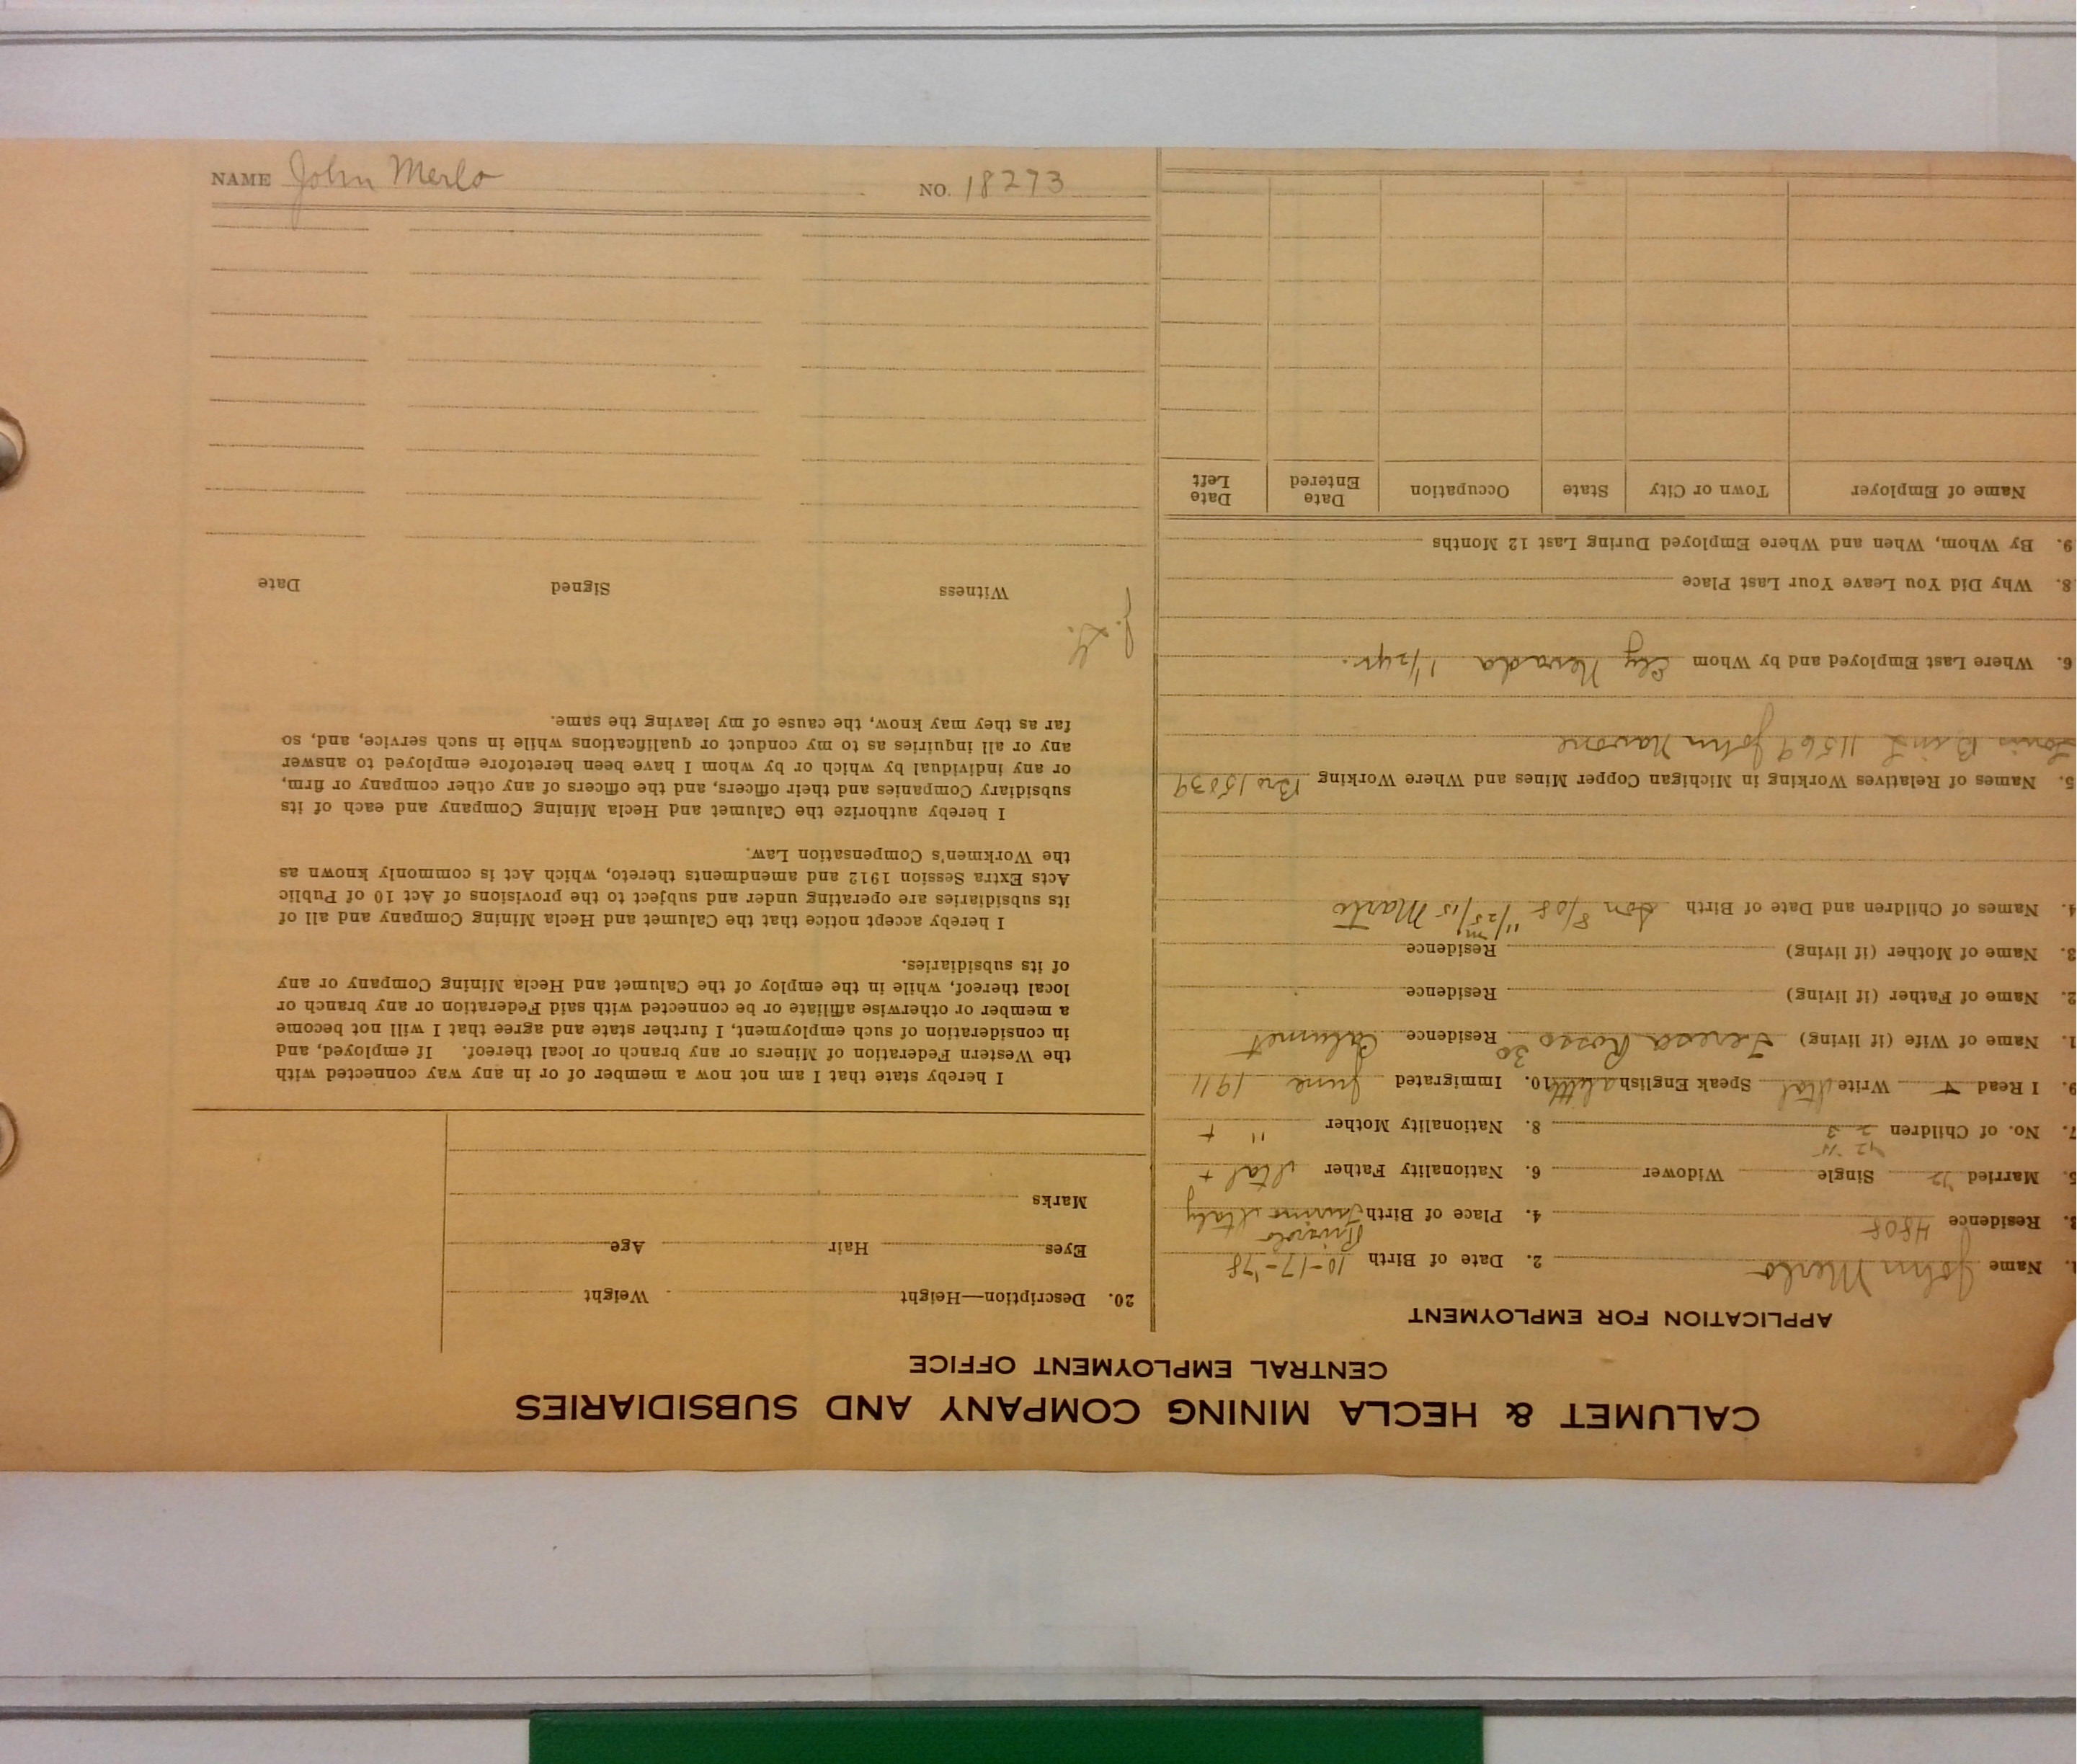 CALUMET & HECLA MINING COMPANY AND SUBSIDIARIES
CENTRAL EMPLOYMENT OFFICE
APPLICATION FOR EMPLOYMENT
1. Name John Merlo 2. Date of Birth 10-17-'78
3. Residence 4808 4. Place of Birth Italy
5. Married Single Widower 6. Nationality Father Ital +
7. No. of Children 2 3 8. Nationality Mother " +
9. I Read + Write Ital Speak English a little 10. Immigrated June 1911
1. Name of Wife (if living) Teresa Rosso 30 Residence Calumet
2. Name of Father (if living) Residence
3. Name of Mother (if living) Residence
4. Names of Children and Date of Birth Son 8/08 11/25/15 Marlo
5. Names of Relatives Working in Michigan Copper Mines and Where Working Bro 15839
Louis 11569 John
6. Where Last Employed and by Whom Ely Nevada 1 1/2 yr.
8. Why Did You Leave Your Last Place
9. By Whom, When and Where Employed During Last 12 Months
Name of Employer Town or City State Occupation Date Entered Date Left
20. Description—Height Weight
Eyes Hair Age
Marks
I hereby state that I am not now a member of or in any way connected with
the Western Federation of Miners or any branch or local thereof. If employed, and
in consideration of such employment, I further state and agree that I will not become
a member or otherwise affiliate or be connected with said Federation or any branch or
local thereof, while in the employ of the Calumet and Hecla Mining Company or any
of its subsidiaries.
I hereby accept notice that the Calumet and Hecla Mining Company and all of
its subsidiaries are operating under and subject to the provisions of Act 10 of Public
Acts Extra Session 1912 and amendments thereto, which Act is commonly known as
the Workmen's Compensation Law.
I hereby authorize the Calumet and Hecla Mining Company and each of its
subsidiary Companies and their officers, and the officers of any other company or firm,
or any individual by which or by whom I have been heretofore employed to answer
any or all inquiries as to my conduct or qualifications while in such service, and, so
far as they may know, the cause of my leaving the same.
Witness Signed Date
NAME John Merlo NO. 18273